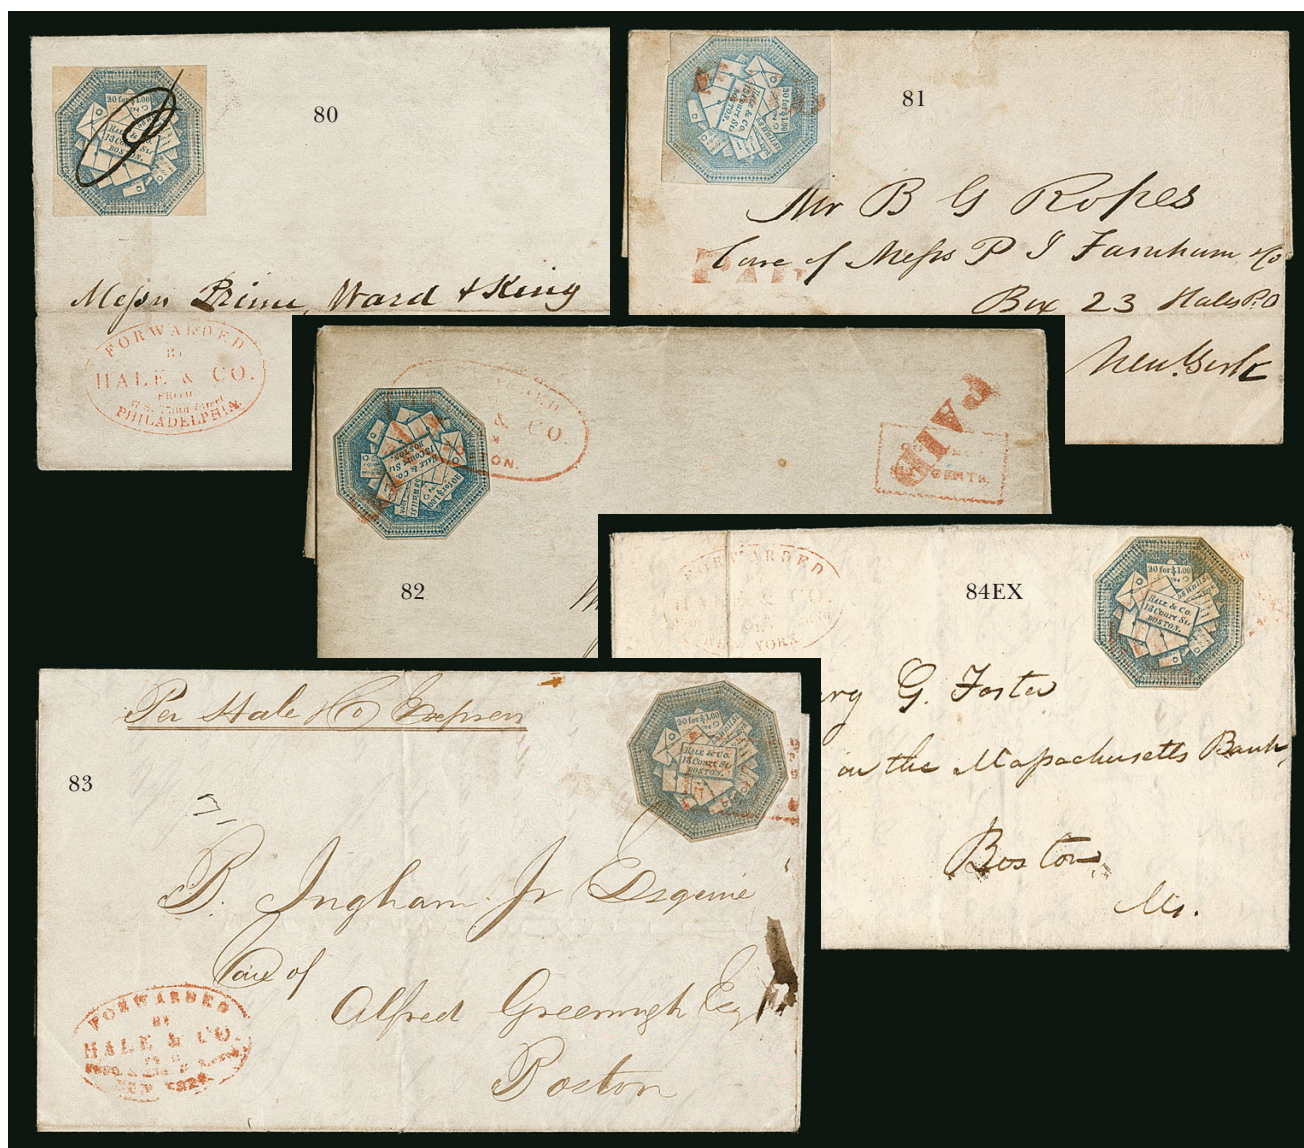 80
20 for $1.00
HALE & CO.
13 Court St.
BOSTON.
Messrs Prime, Ward & King
FORWARDED
BY
HALE & CO.
FROM
PHILADELPHIA.
81
20 for $1.00
HALE & CO.
13 Court St.
BOSTON.
Mr B G Ropes
Care of Messs P I Farnham & Co
PAI
Box 23 Hales P.O
New York
82
20 for $1.00
HALE & CO.
13 Court St.
BOSTON.
& CO.
ON.
PAID
CENTS.
84EX
FORWARDED
HALE & CO.
YORK
20 for $1.00
HALE & CO.
13 Court St.
BOSTON.
ry G. Foster
on the Massachusetts Bank,
Boston,
Ms.
83
Per Hale & Co Express
20 for $1.00
HALE & CO.
13 Court St.
BOSTON.
B. Ingham Jr Esquire
Care of
Alfred Greenough Esq
Boston
FORWARDED
BY
HALE & CO.